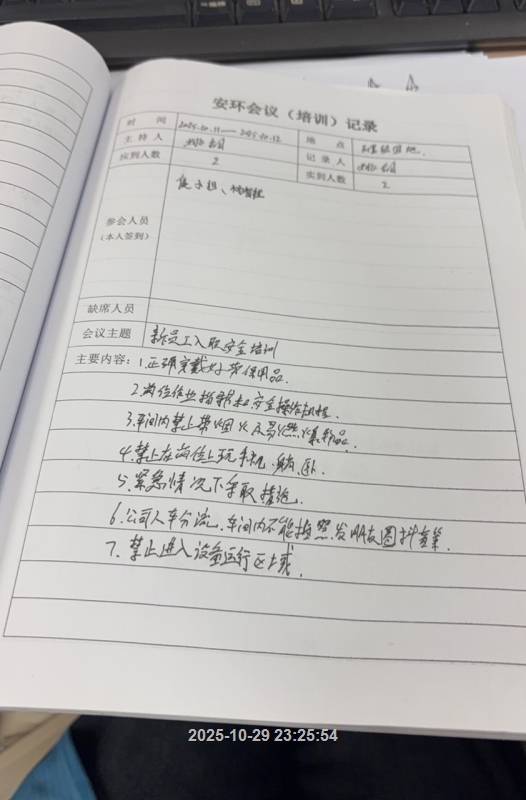 安环会议（培训）记录
时 间 2025.10.11——2025.10.12 地 点
主 持 人 记 录 人
应到人数 2 实到人数 2
参会人员
（本人签到）
缺席人员
会议主题 新员工入职安全培训
主要内容：1.正确穿戴好劳保用品.
2.岗位作业指导书和安全操作规程.
3.车间内禁止带烟火及易燃、爆物品.
4.禁止在岗位上玩手机、躺、卧.
5.紧急情况下采取措施.
6.公司人车分流，车间内不能拍照发朋友圈抖音等.
7.禁止进入设备运行区域.
2025-10-29 23:25:54